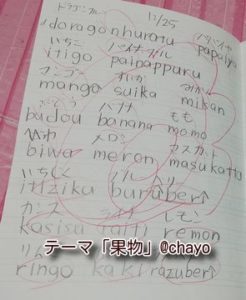 ドラゴンフルーツ 11/25 パパイヤ
doragonhurutu papaiya
いちご パイナップル
itigo painappuru
マンゴー すいか みかん
mango suika mikan
ぶどう バナナ もも
budou banana momo
びわ メロン マスカット
biwa meron masukatto
いちじく
itizika buruberi
カシス ライチ レモン
kasisu raiti remon
りんご
ringo kaki razuberi
テーマ「果物」@chayo